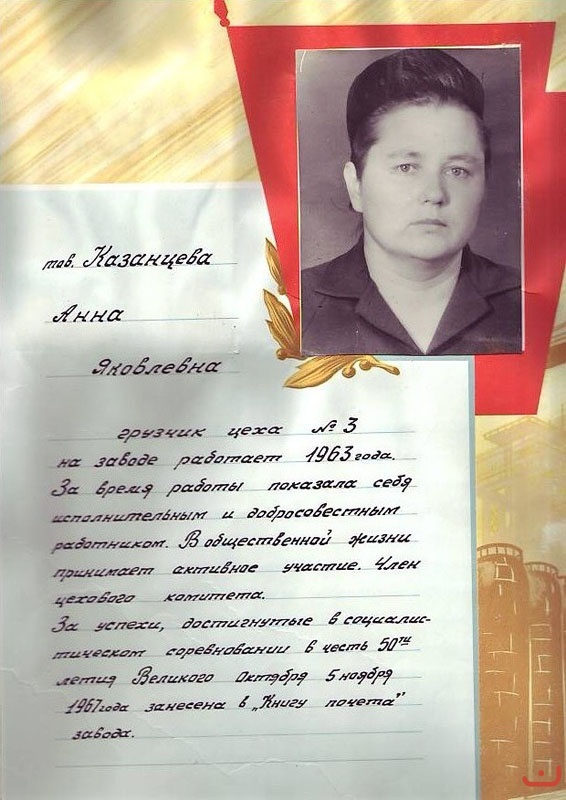 тов. Казанцева
Анна
Яковлевна
грузчик цеха № 3
на заводе работает 1963 года.
За время работы показала себя
исполнительным и добросовестным
работником. В общественной жизни
принимает активное участие. Член
цехового комитета.
За успехи, достигнутые в социалис-
тическом соревновании в честь 50ти
летия Великого Октября 5 ноября
1967 года занесена в „Книгу почета"
завода.